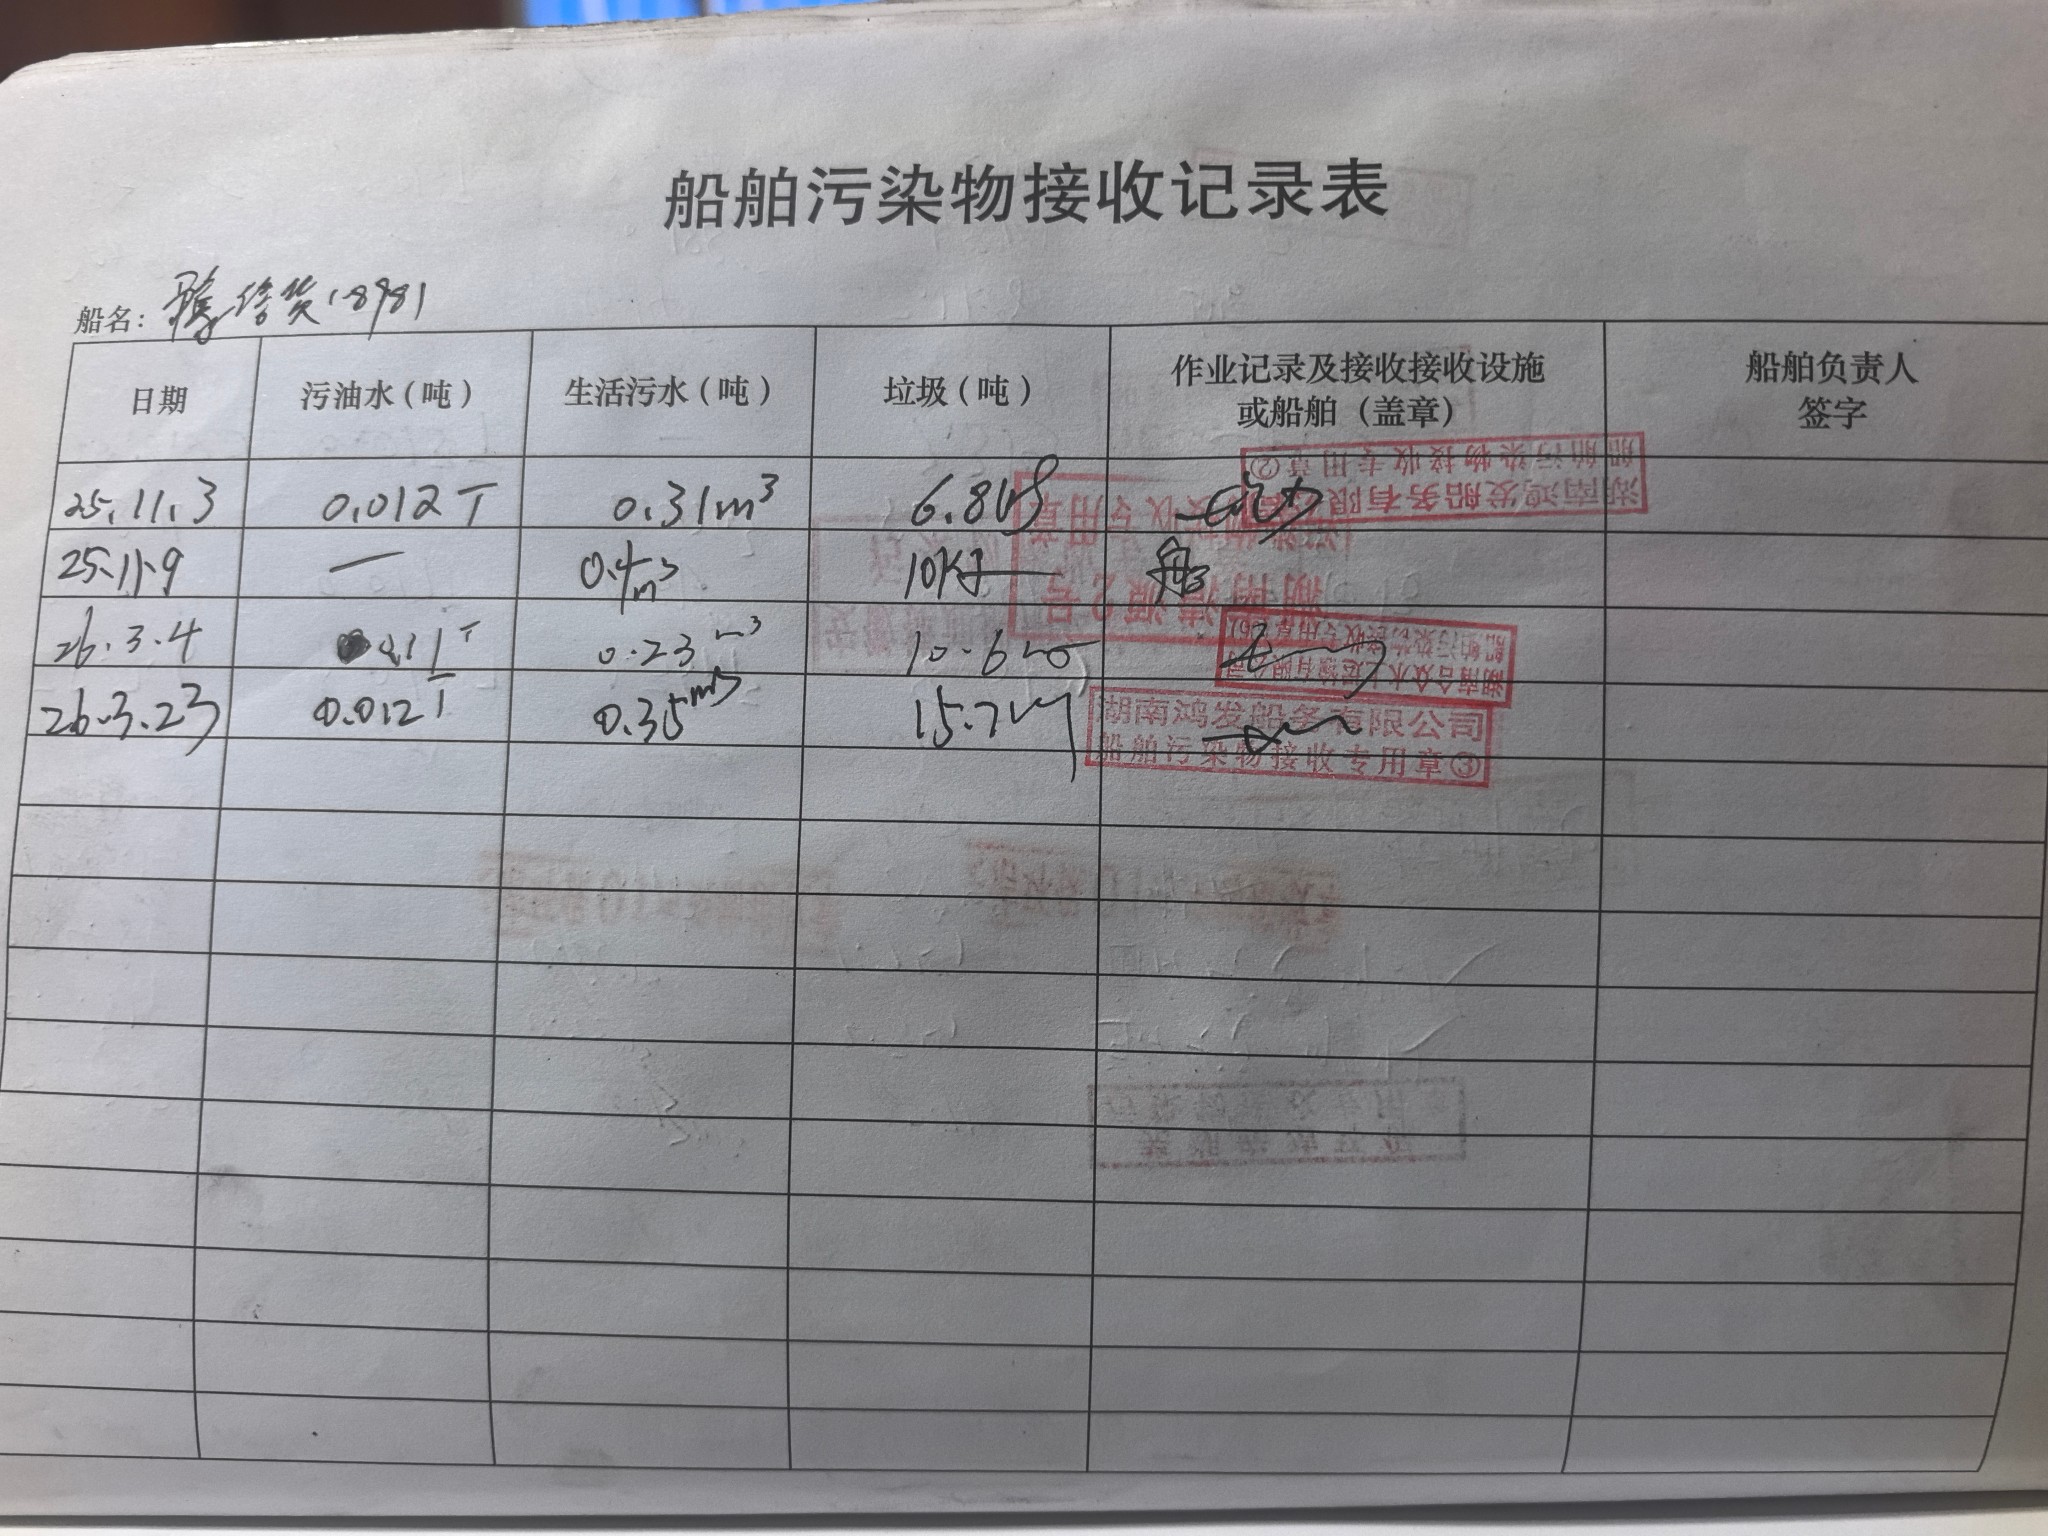 船舶污染物接收记录表
船名: 货18981
日期 污油水(吨) 生活污水(吨) 垃圾(吨) 作业记录及接收接收设施或船舶(盖章) 船舶负责人签字
25.11.3 0.012T 0.31m³ 6.8
湖南鸿发船务有限公司
船舶污染物接收专用章②
25.11.9 — 0.4m³ 10kg
26.3.4 0.23m³ 10.6
湖南合众水上运输有限公司
26.3.23 0.012T 0.35m³ 15.7
湖南鸿发船务有限公司
船舶污染物接收专用章③